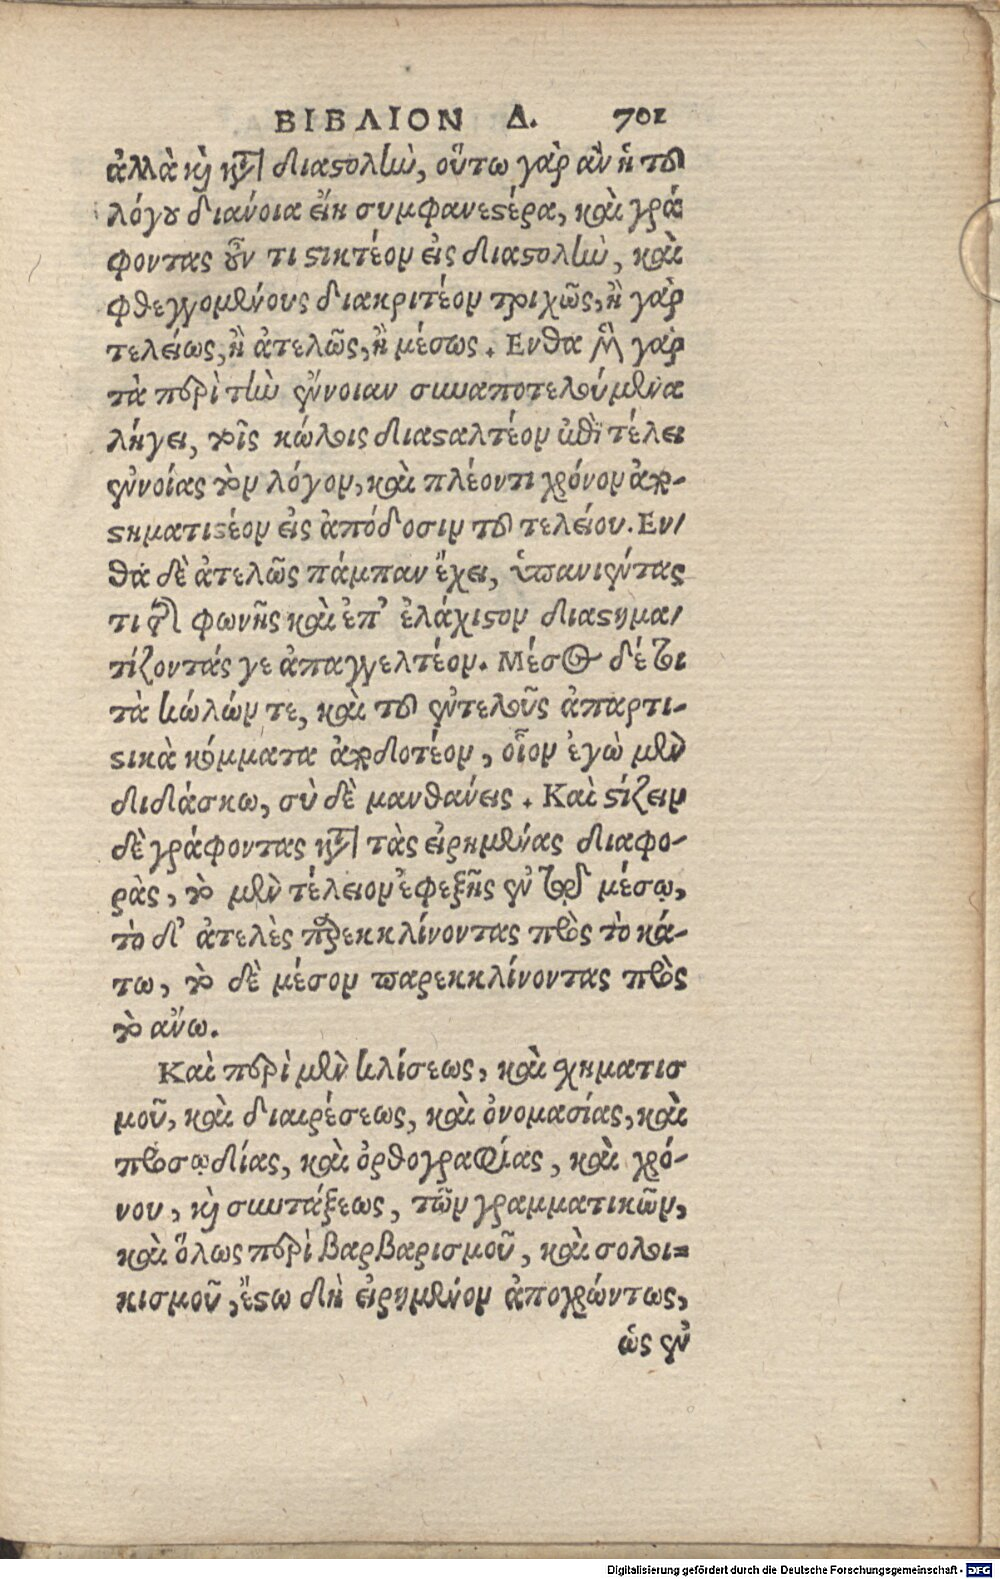 ΒΙΒΛΙΟΝ Δ. 701
ἀλλὰ καὶ κατὰ διαστολὴν, οὕτω γὰρ ἂν ἡ τοῦ
λόγου διάνοια εἴη συμφανεστέρα, καὶ γρά
φοντας οὖν τι στικτέον εἰς διαστολὴν, καὶ
φθεγγομένους διακριτέον τριχῶς, ἢ γὰρ
τελείως, ἢ ἀτελῶς, ἢ μέσως. Ενθα μὲν γὰρ
τὰ περὶ τὴν ἔννοιαν συναποτελούμενα
λήγει, τοῖς κώλοις διασταλτέον ἐπὶ τέλει
ἐννοίας τὸν λόγον, καὶ πλέοντι χρόνον δια-
στηματιστέον εἰς ἀπόδοσιν τοῦ τελείου. Εν/
θα δὲ ἀτελῶς πάμπαν ἔχει, ὑπανιέντας
τι τῆς φωνῆς καὶ ἐπ' ἐλάχιστον διαστημα/
τίζοντάς γε ἀπαγγελτέον. Μέσος δέ τοι
τὰ κώλων τε, καὶ τοῦ ἐντελοῦς ἀπαρτι-
στικὰ κόμματα διαδοτέον, οἷον ἐγὼ μὲν
διδάσκω, σὺ δὲ μανθάνεις. Καὶ στίζειν
δὲ γράφοντας κατὰ τὰς εἰρημένας διαφο-
ρὰς, τὸ μὲν τέλειον ἐφεξῆς ἐν τῷ μέσῳ,
τὸ δ' ἀτελὲς παρεκκλίνοντας πρὸς τὸ κά-
τω, τὸ δὲ μέσον παρεκκλίνοντας πρὸς
τὸ ἄνω.
Καὶ περὶ μὲν κλίσεως, καὶ σχηματισ
μοῦ, καὶ διαιρέσεως, καὶ ὀνομασίας, καὶ
προσῳδίας, καὶ ὀρθογραφίας, καὶ χρό-
νου, καὶ συντάξεως, τῶν γραμματικῶν,
καὶ ὅλως περὶ βαρβαρισμοῦ, καὶ σολοι=
κισμοῦ, ἔστω δὴ εἰρημένον ἀποχρώντως,
ὡς ἐν
Digitalisierung gefördert durch die Deutsche Forschungsgemeinschaft - DFG